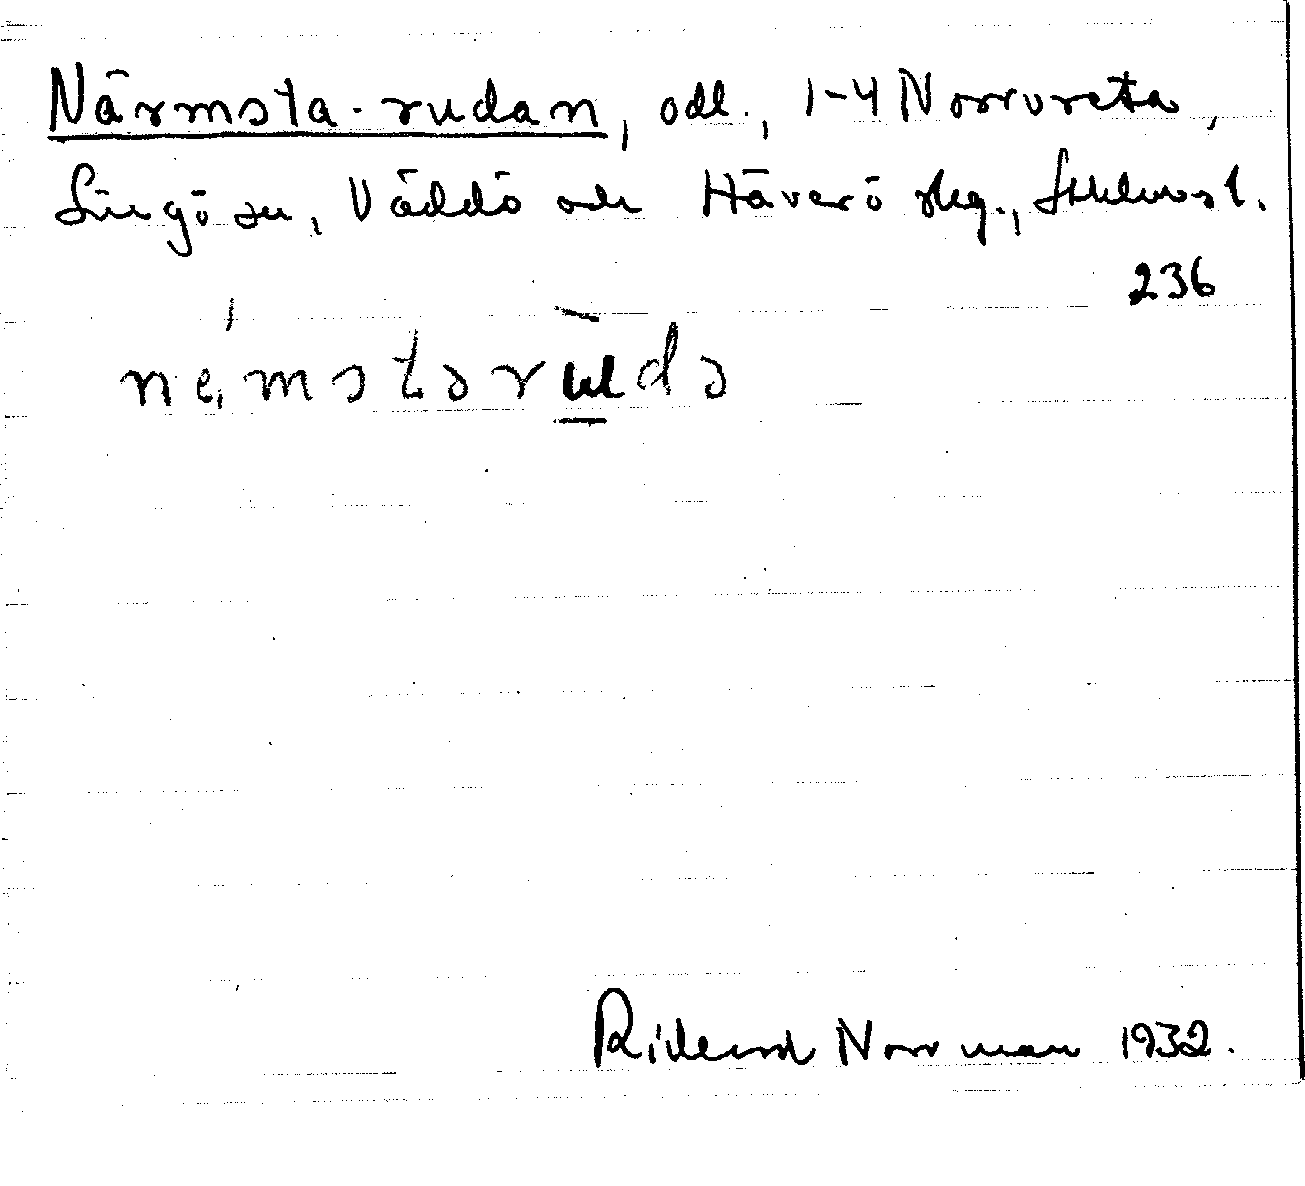 Närmsta-rudan, odl., 1-4 Norrvreta,
Singö sn, Väddö och Häverö skg., Sthlms l.
236
Rickard Norrman 1932.